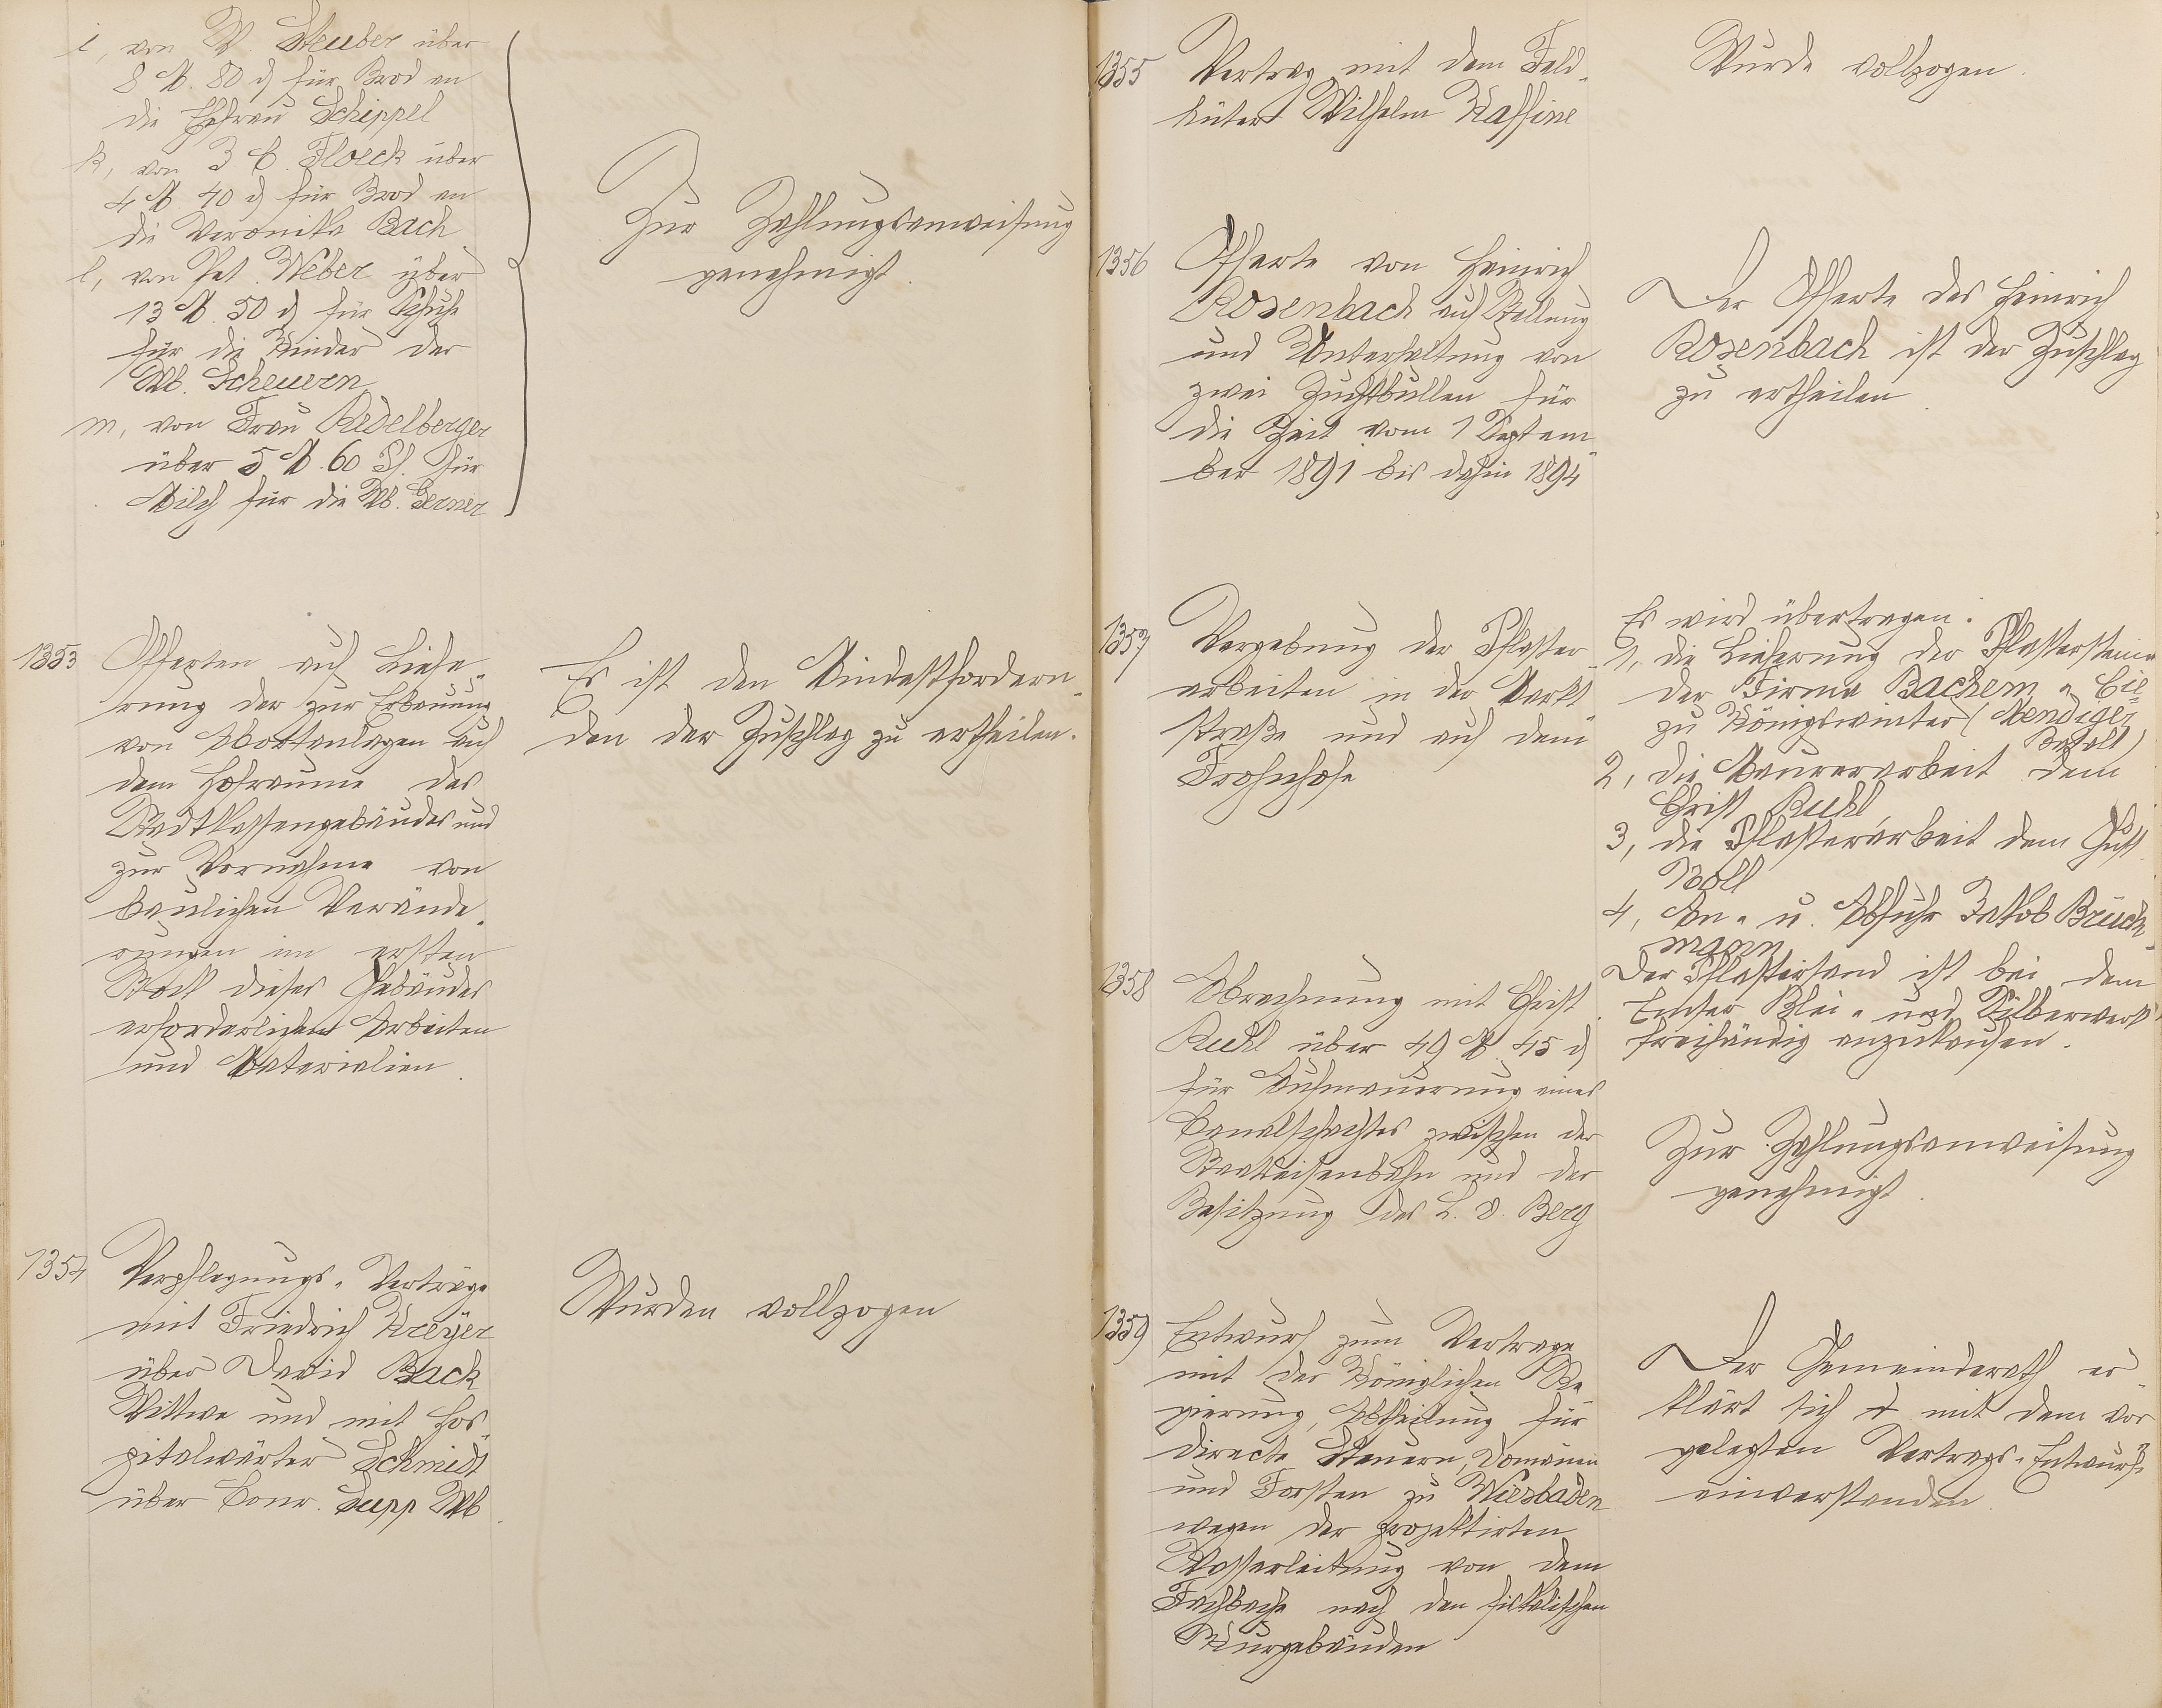 i, von W. Steuber über
8 M. 80 d für Brod an
die Ehefrau Schippel
k, von J C. Floeck über
4 M. 40 d für Brod an
die Veronika Bach
l, von Pet. Weber über
13 M. 50 d für Schuhe
für die Kinder der
Wb. Scheuern
m, von Frau Redelberger
über 5 M. 60 Pf. für
Milch für die Wb. Gerner
Zur Zahlungsanweisung
genehmigt.
1353
Offerten auf Liefe-
rung der zur Erbauung
von Abortanlagen auf
dem Hofraume des
Stadtkassengebäudes und
zur Vornahme von
baulichen Verände-
rungen im ersten
Stock dieses Gebäudes
erforderlichen Arbeiten
und Materialien.
Es ist den Mindestfordern-
den der Zuschlag zu ertheilen.
1354
Verpflegungs-Verträge
mit Friedrich Kreyer
über David Back
Wittwe und mit Hos-
pitalwärter Schmidt
über Conr. Supp Wb.
Wurden vollzogen
1355
Vertrag mit dem Feld-
hüter Wilhelm Kaffine
Wurde vollzogen.
1356
Offerte von Heinrich
Rosenbach auf Stellung
und Unterhaltung von
zwei Zuchtbullen für
die Zeit vom 1 Septem-
ber 1891 bis dahin 1894
Der Offerte des Heinrich
Rosenbach ist der Zuschlag
zu ertheilen.
1357
Vergebung der Pflaster-
arbeiten in der Markt-
straße und auf dem
Frohnhofe
Es wird übertragen:
1, die Lieferung der Pflastersteine
der Firma Bachem & Cie
zu Königswinter (Mendiger
Basalt)
2, die Maurerarbeit dem
Christ Ruhl
3, die Pflasterarbeit dem Gust.
Noll
4, An- u. Abfuhr Jakob Brück-
mann
Der Pflastersand ist bei dem
Emser Blei- und Silberwerk
freihändig anzukaufen.
1358
Abrechnung mit Christ.
Ruhl über 49 M. 45 d
für Aufmauerung eines
Canalschachtes zwischen der
Staatseisenbahn und der
Besitzung des L. v. Berg
Zur Zahlungsanweisung
genehmigt.
1359
Entwurf zum Vertrage
mit der Königlichen Re-
gierung, Abtheilung für
directe Steuern, Domänen
und Forsten zu Wiesbaden
wegen der projektirten
Wasserleitung von dem
Fachbache nach den fiskalischen
Kurgebäuden
Der Gemeinderath er-
klärt sich mit dem vor-
gelegten Vertrags-Entwurfe
einverstanden.